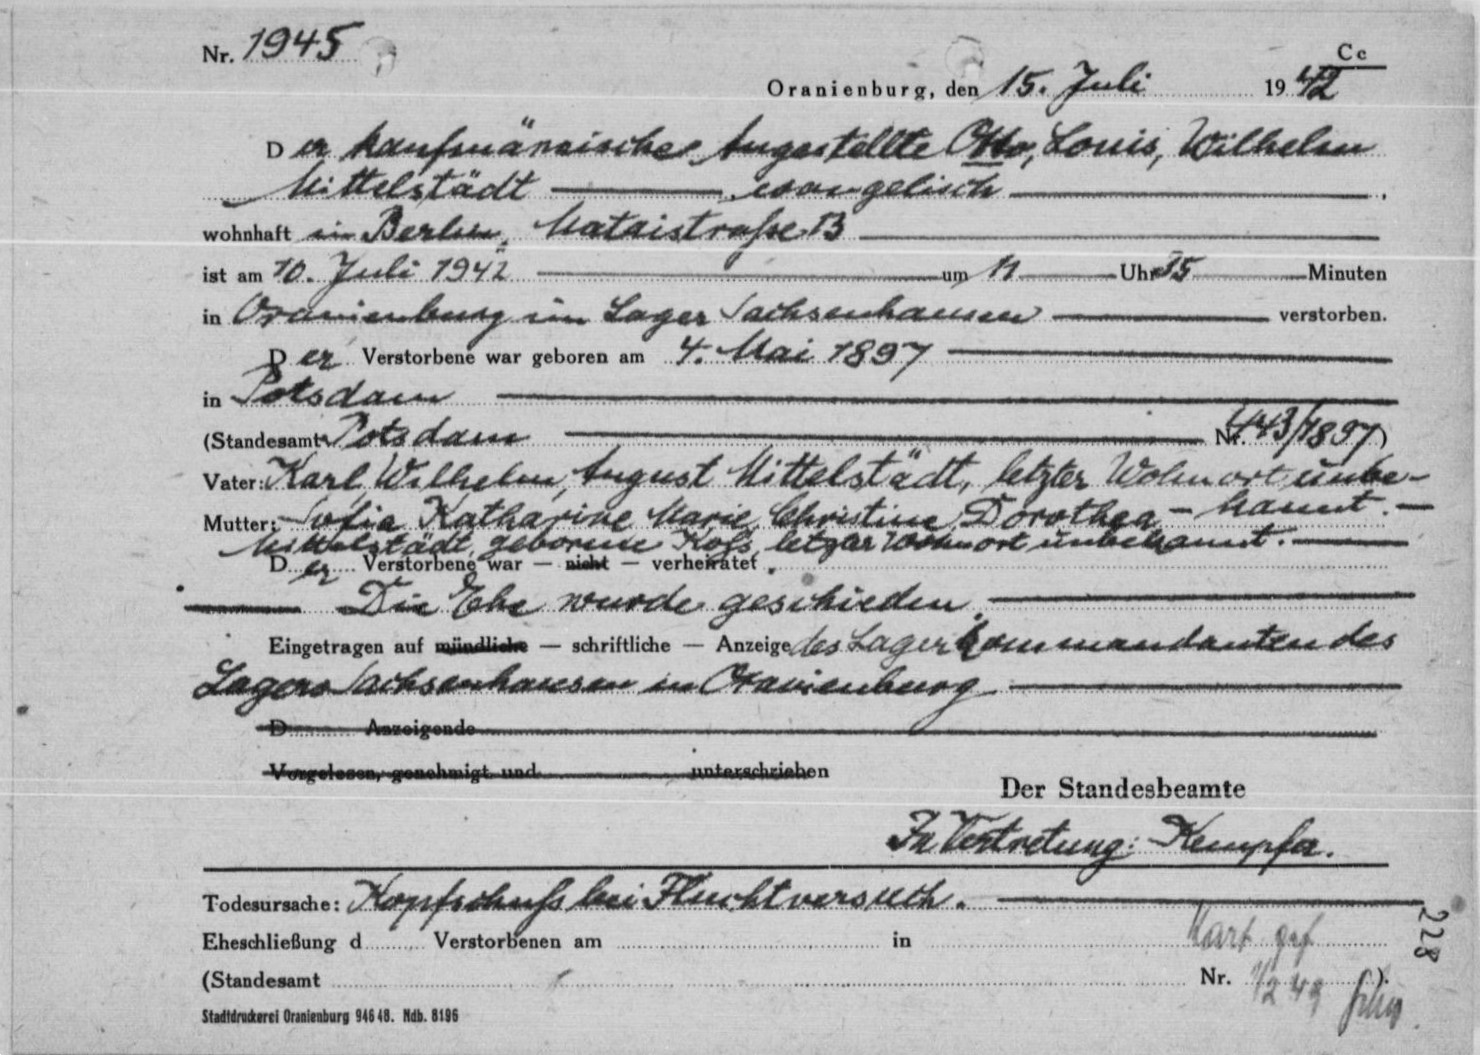 Nr. 1945
Cc
Oranienburg, den 15. Juli 1942
Der kaufmännische Angestellte Otto, Louis, Wilhelm
Mittelstädt evangelisch
wohnhaft in Berlin,
ist am 10. Juli 1942 um 11 Uhr 35 Minuten
in Oranienburg im Lager Sachsenhausen verstorben.
Der Verstorbene war geboren am 4. Mai 1897
in Potsdam
(Standesamt Potsdam Nr. 443/1897)
Vater: Karl, Wilhelm, August Mittelstädt, letzter Wohnort unbe-
Mutter: Sofia Katharine Marie Christine Dorothea – kannt. –
Mittelstädt geborene Koß letzter Wohnort unbekannt.
Der Verstorbene war — nicht — verheiratet.
Die Ehe wurde geschieden
Eingetragen auf mündliche — schriftliche — Anzeige des Lagerkommandanten des
Lagers Sachsenhausen in Oranienburg
D Anzeigende
Vorgelesen, genehmigt und unterschrieben
Der Standesbeamte
In Vertretung: Kempfer.
Todesursache: Kopfschuß bei Fluchtversuch.
228
Eheschließung d Verstorbenen am in
(Standesamt Nr. )
Stadtdruckerei Oranienburg 946 48. Ndb. 8196